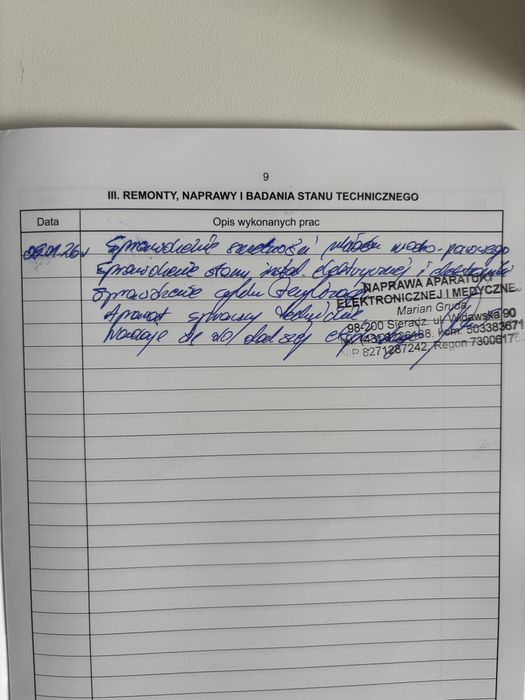 9
III. REMONTY, NAPRAWY I BADANIA STANU TECHNICZNEGO
Data Opis wykonanych prac
Sprawdzenie szczelności układu wodno-parowego
Sprawdzenie stanu instal. elektrycznej i
Sprawdzenie cyklu
Aparat sprawny technicznie
Nadaje się do dalszej
NAPRAWA APARATURY
ELEKTRONICZNEJ I MEDYCZNEJ
Marian Gruda
98-200 Sieradz, ul. Widawska 90
kom. 503383671
NIP 8271267242, Regon 7300617